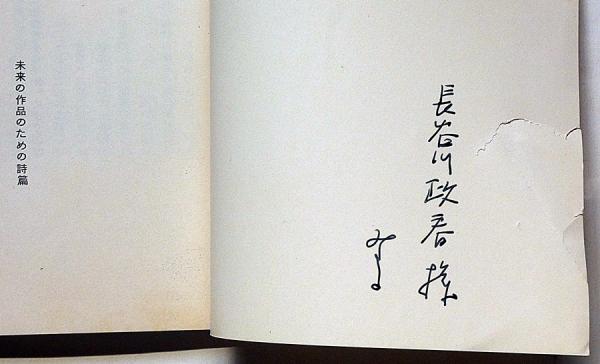 長谷川政春様
みずる
未来の作品のための詩篇